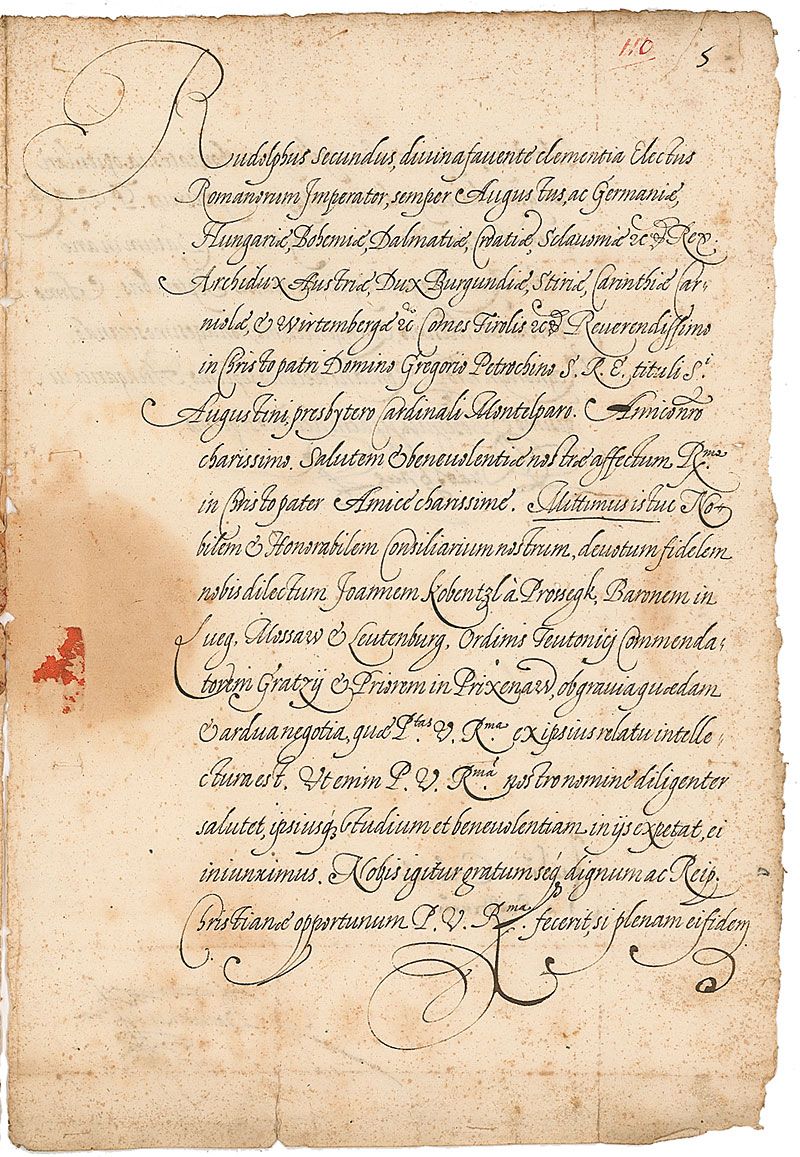 110 5
Rudolphus Secundus, divina favente clementia Electus
Romanorum Imperator, semper Augustus, ac Germaniæ,
Hungariæ, Bohemiæ, Dalmatiæ, Croatiæ, Sclavoniæ &c Rex,
Archidux Austriæ, Dux Burgundiæ, Stiriæ, Carinthiæ Car-
niolæ, & Wirtembergæ &c Comes Tirolis &c Reverendissimo
in Christo patri Domino Gregorio Petrochino S. R. E. tituli S.ti
Augustini, presbytero Cardinali Montelparo. Amico nro
charissimo. Salutem & benevolentiæ nostræ affectum R.me
in Christo pater Amice charissime. Mittimus istuc No-
bilem & Honorabilem Consiliarium nostrum, devotum fidelem
nobis dilectum Joannem Kobentzl à Prossegk, Baronem in
Lueg, Mossaw & Leutenburg, Ordinis Teutonicj Commenda-
torem Gratzij & Priorem in Prixenaw, ob gravia quædam
& ardua negotia, quæ P.tas V. R.ma ex ipsius relatu intelle-
ctura est. Ut enim P. V. R.má nostro nomine diligenter
salutet, ipsiusq; studium et benevolentiam in ijs expetat, ei
iniunximus. Nobis igitur gratum seq; dignum ac Reip.
Christianæ opportunum P. V. R.ma. fecerit, si plenam ei fidem